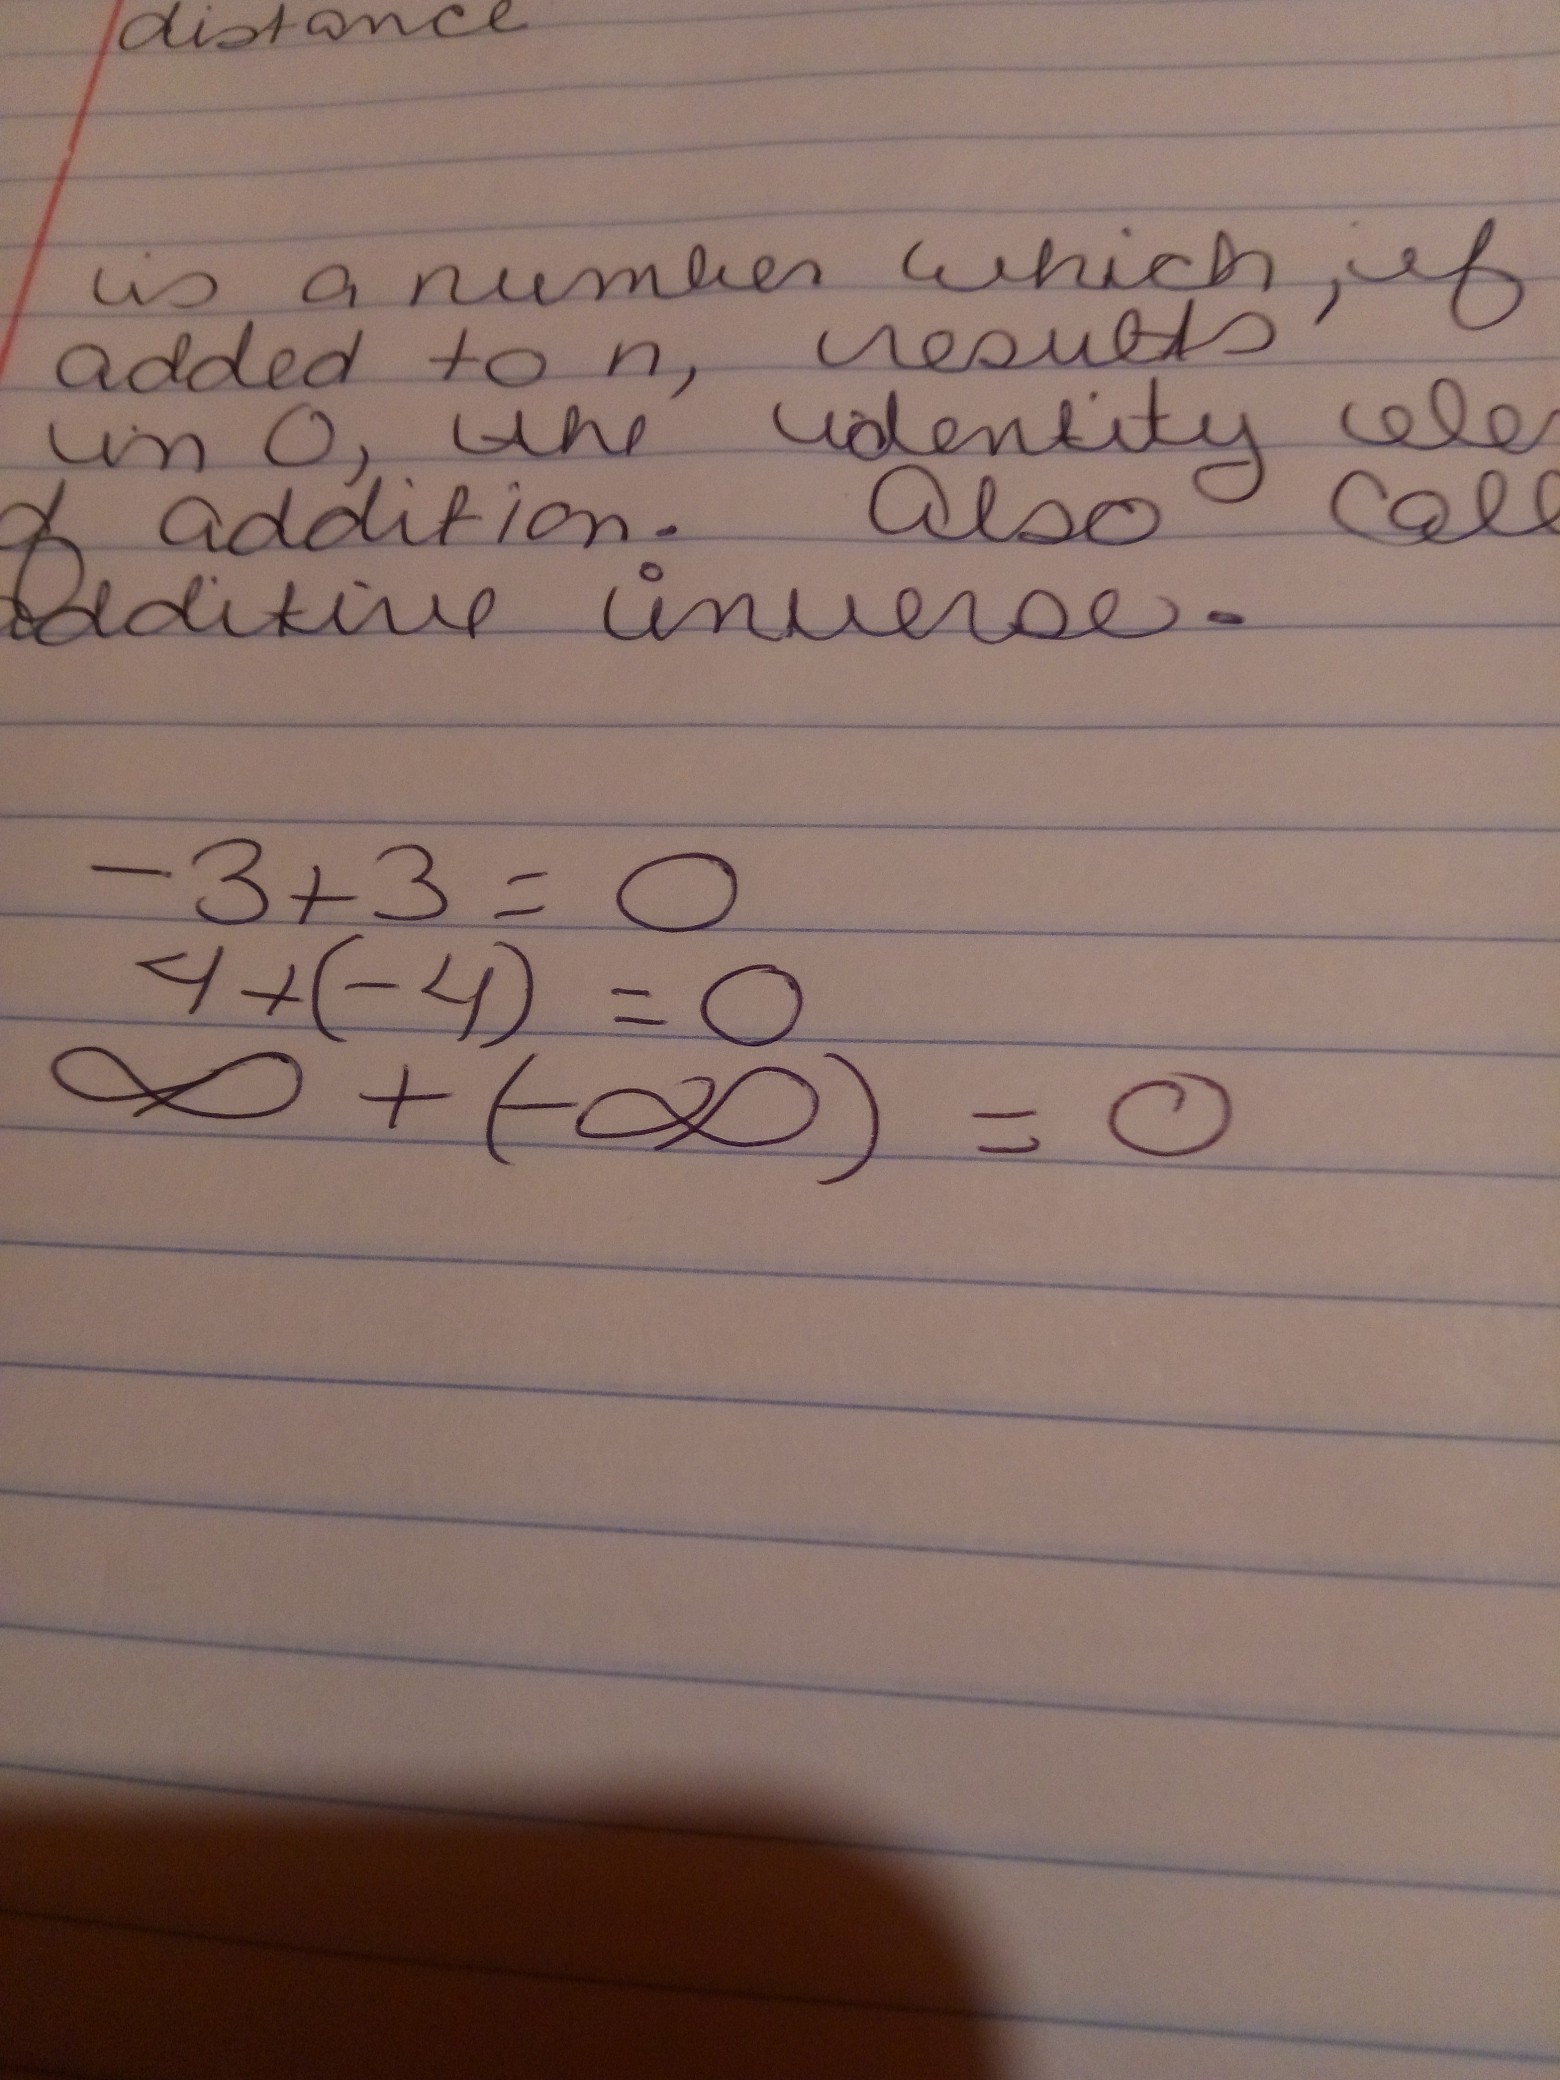 distance
is a number which, if
added to n, results
in 0, the identity ele
of addition. Also call
additive inverse.
-3+3=0
4+(-4)=0
∞+(-∞)=0